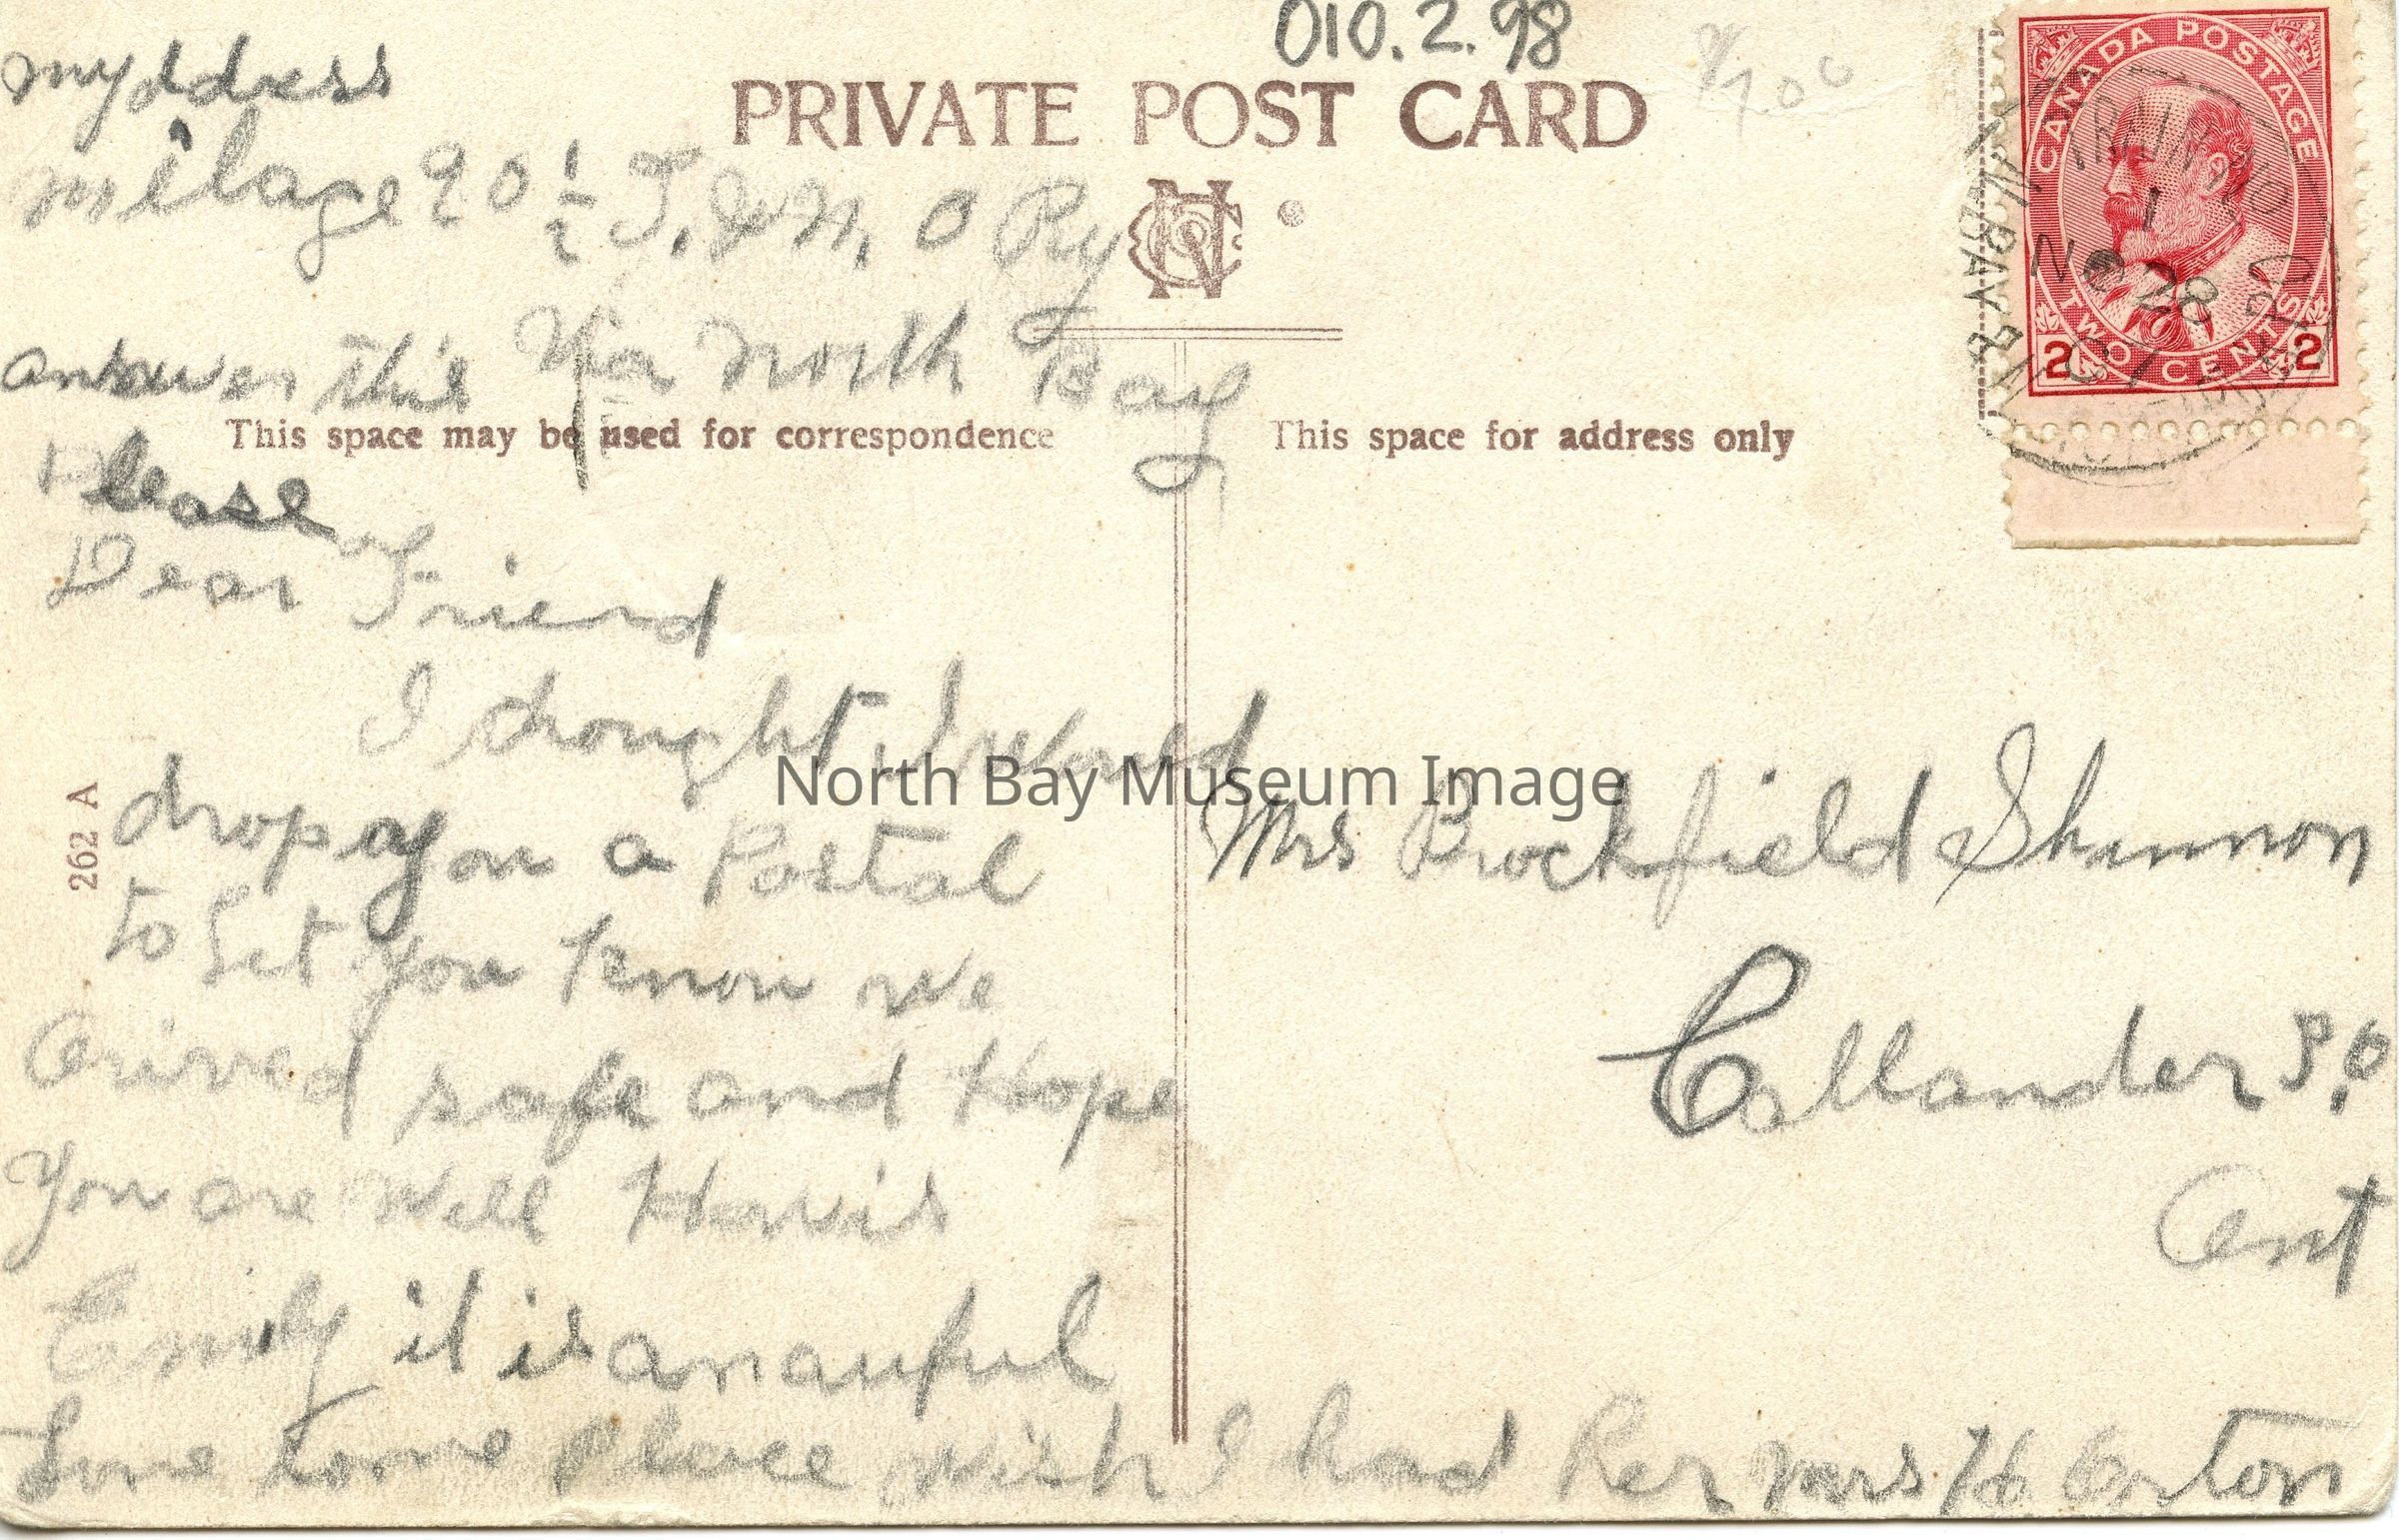 010.2.98
PRIVATE POST CARD
CANADA POSTAGE
TWO CENTS
2 2
NO 28
07
my ddress
milage 90 1/2 T. & N. O Ry
answer this Via North Bay
Please
This space may be used for correspondence
This space for address only
Dear Friend
I thought I Would
drop you a Postal
to Let you know we
arived safe and Hope
you are Well How is
Emily it is an auful
Lone some Place wish I had her Mrs H Orton
262 A
Mrs Brockfield Shannon
Callander P.O
Ont
North Bay Museum Image